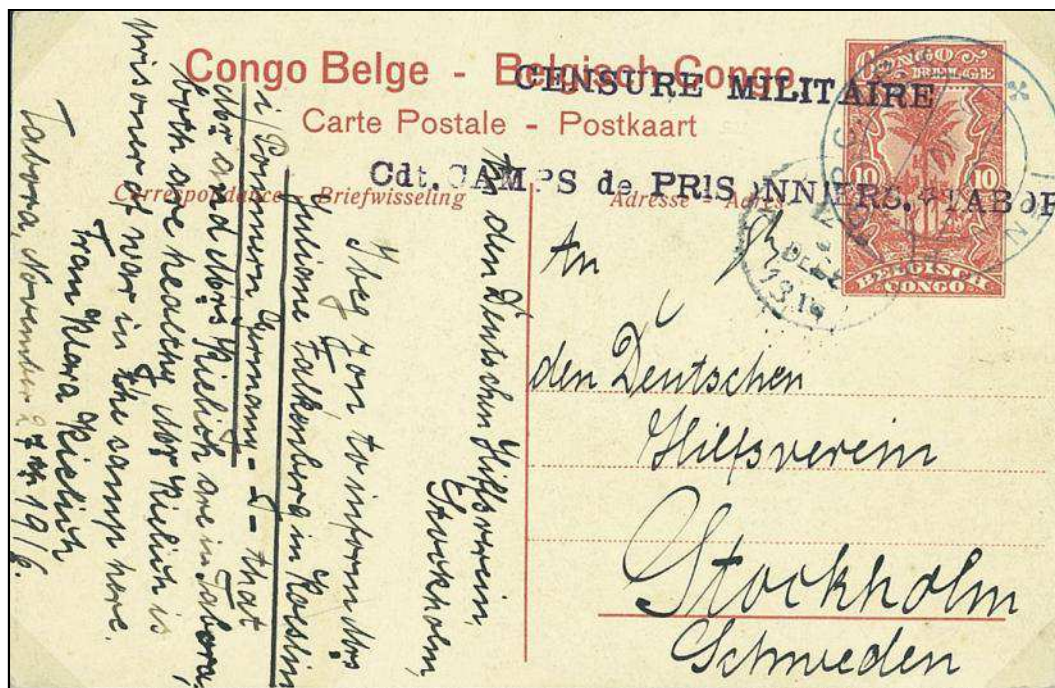 Congo Belge - Belgisch Congo
Carte Postale - Postkaart
CENSURE MILITAIRE
Cdt. CAMPS de PRISONNIERS. TABOR
Correspondance Briefwisseling
Adresse - Adres
CONGO
BELGE
10 10
BELGISCH
CONGO
DEUX
An
den Deutschen
Hilfsverein
Stockholm
Schweden
An den Deutschen Hilfsverein,
Stockholm,
I beg you to inform Mrs
Juliane Falkenberg in Koeslin
i/ Pommern Germany - that
Mr and Mrs Kielich are in Tabora,
both are healthy Mr Kielich is
prisoner of war in the camp here.
Frau Klara Kielich
Tabora, November 27th 1916.